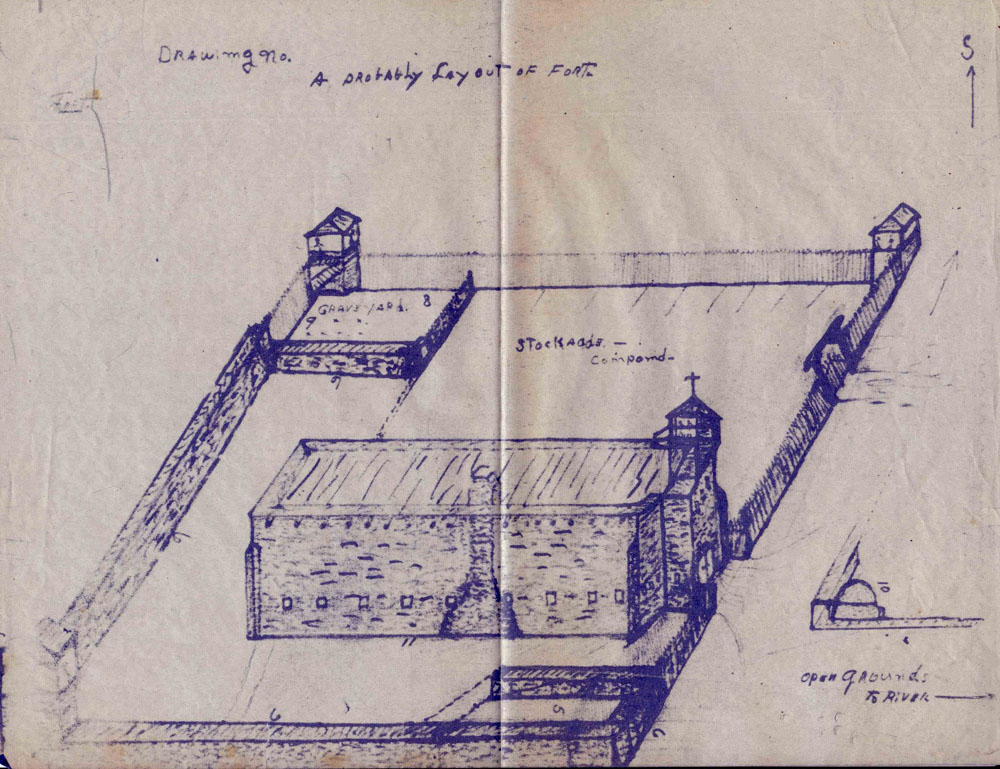 Drawing no.
A probably Layout of Fort.
S
GRAVEYARD.
8
9
Stockade. —
Compound-
7
10
11
Open grounds
To River
6
5